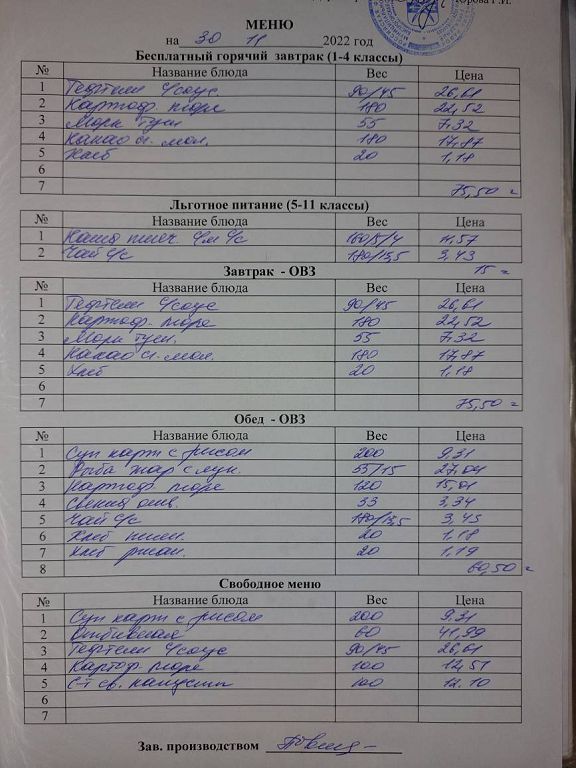 Юрова Г.И.
МЕНЮ
на 30 11 2022 год
Бесплатный горячий завтрак (1-4 классы)
№ Название блюда Вес Цена
1 Тефтели с/соус 90/45 26,61
2 Картоф. пюре 180 22,52
3 Морк туш 55 7.32
4 Какао сг. мол. 180 17,87
5 Хлеб 20 1,18
6
7 75,50 =
Льготное питание (5-11 классы)
№ Название блюда Вес Цена
1 Каша пшен. с/м с/с 160/5/4 11,57
2 Чай с/с 180/13,5 3,43
15 =
Завтрак - ОВЗ
№ Название блюда Вес Цена
1 Тефтели с/соус 90/45 26,61
2 Картоф. пюре 180 22,52
3 Морк туш. 55 7.32
4 Какао сг. мол. 180 17,87
5 Хлеб 20 1,18
6
7 75,50 =
Обед - ОВЗ
№ Название блюда Вес Цена
1 Суп карт с рисом 200 9.31
2 Рыба жар с лук. 55/15 27.04
3 Картоф. пюре 120 15,01
4 33 3,34
5 Чай с/с 180/13,5 3,43
6 Хлеб пшен. 20 1,18
7 Хлеб ржан. 20 1,19
8 60,50 =
Свободное меню
№ Название блюда Вес Цена
1 Суп карт с рисом 200 9.31
2 Отбивная 60 41,99
3 Тефтели с/соус 90/45 26,61
4 Картоф. пюре 100 12,51
5 с-т св. капусты 100 12.10
6
7
Зав. производством